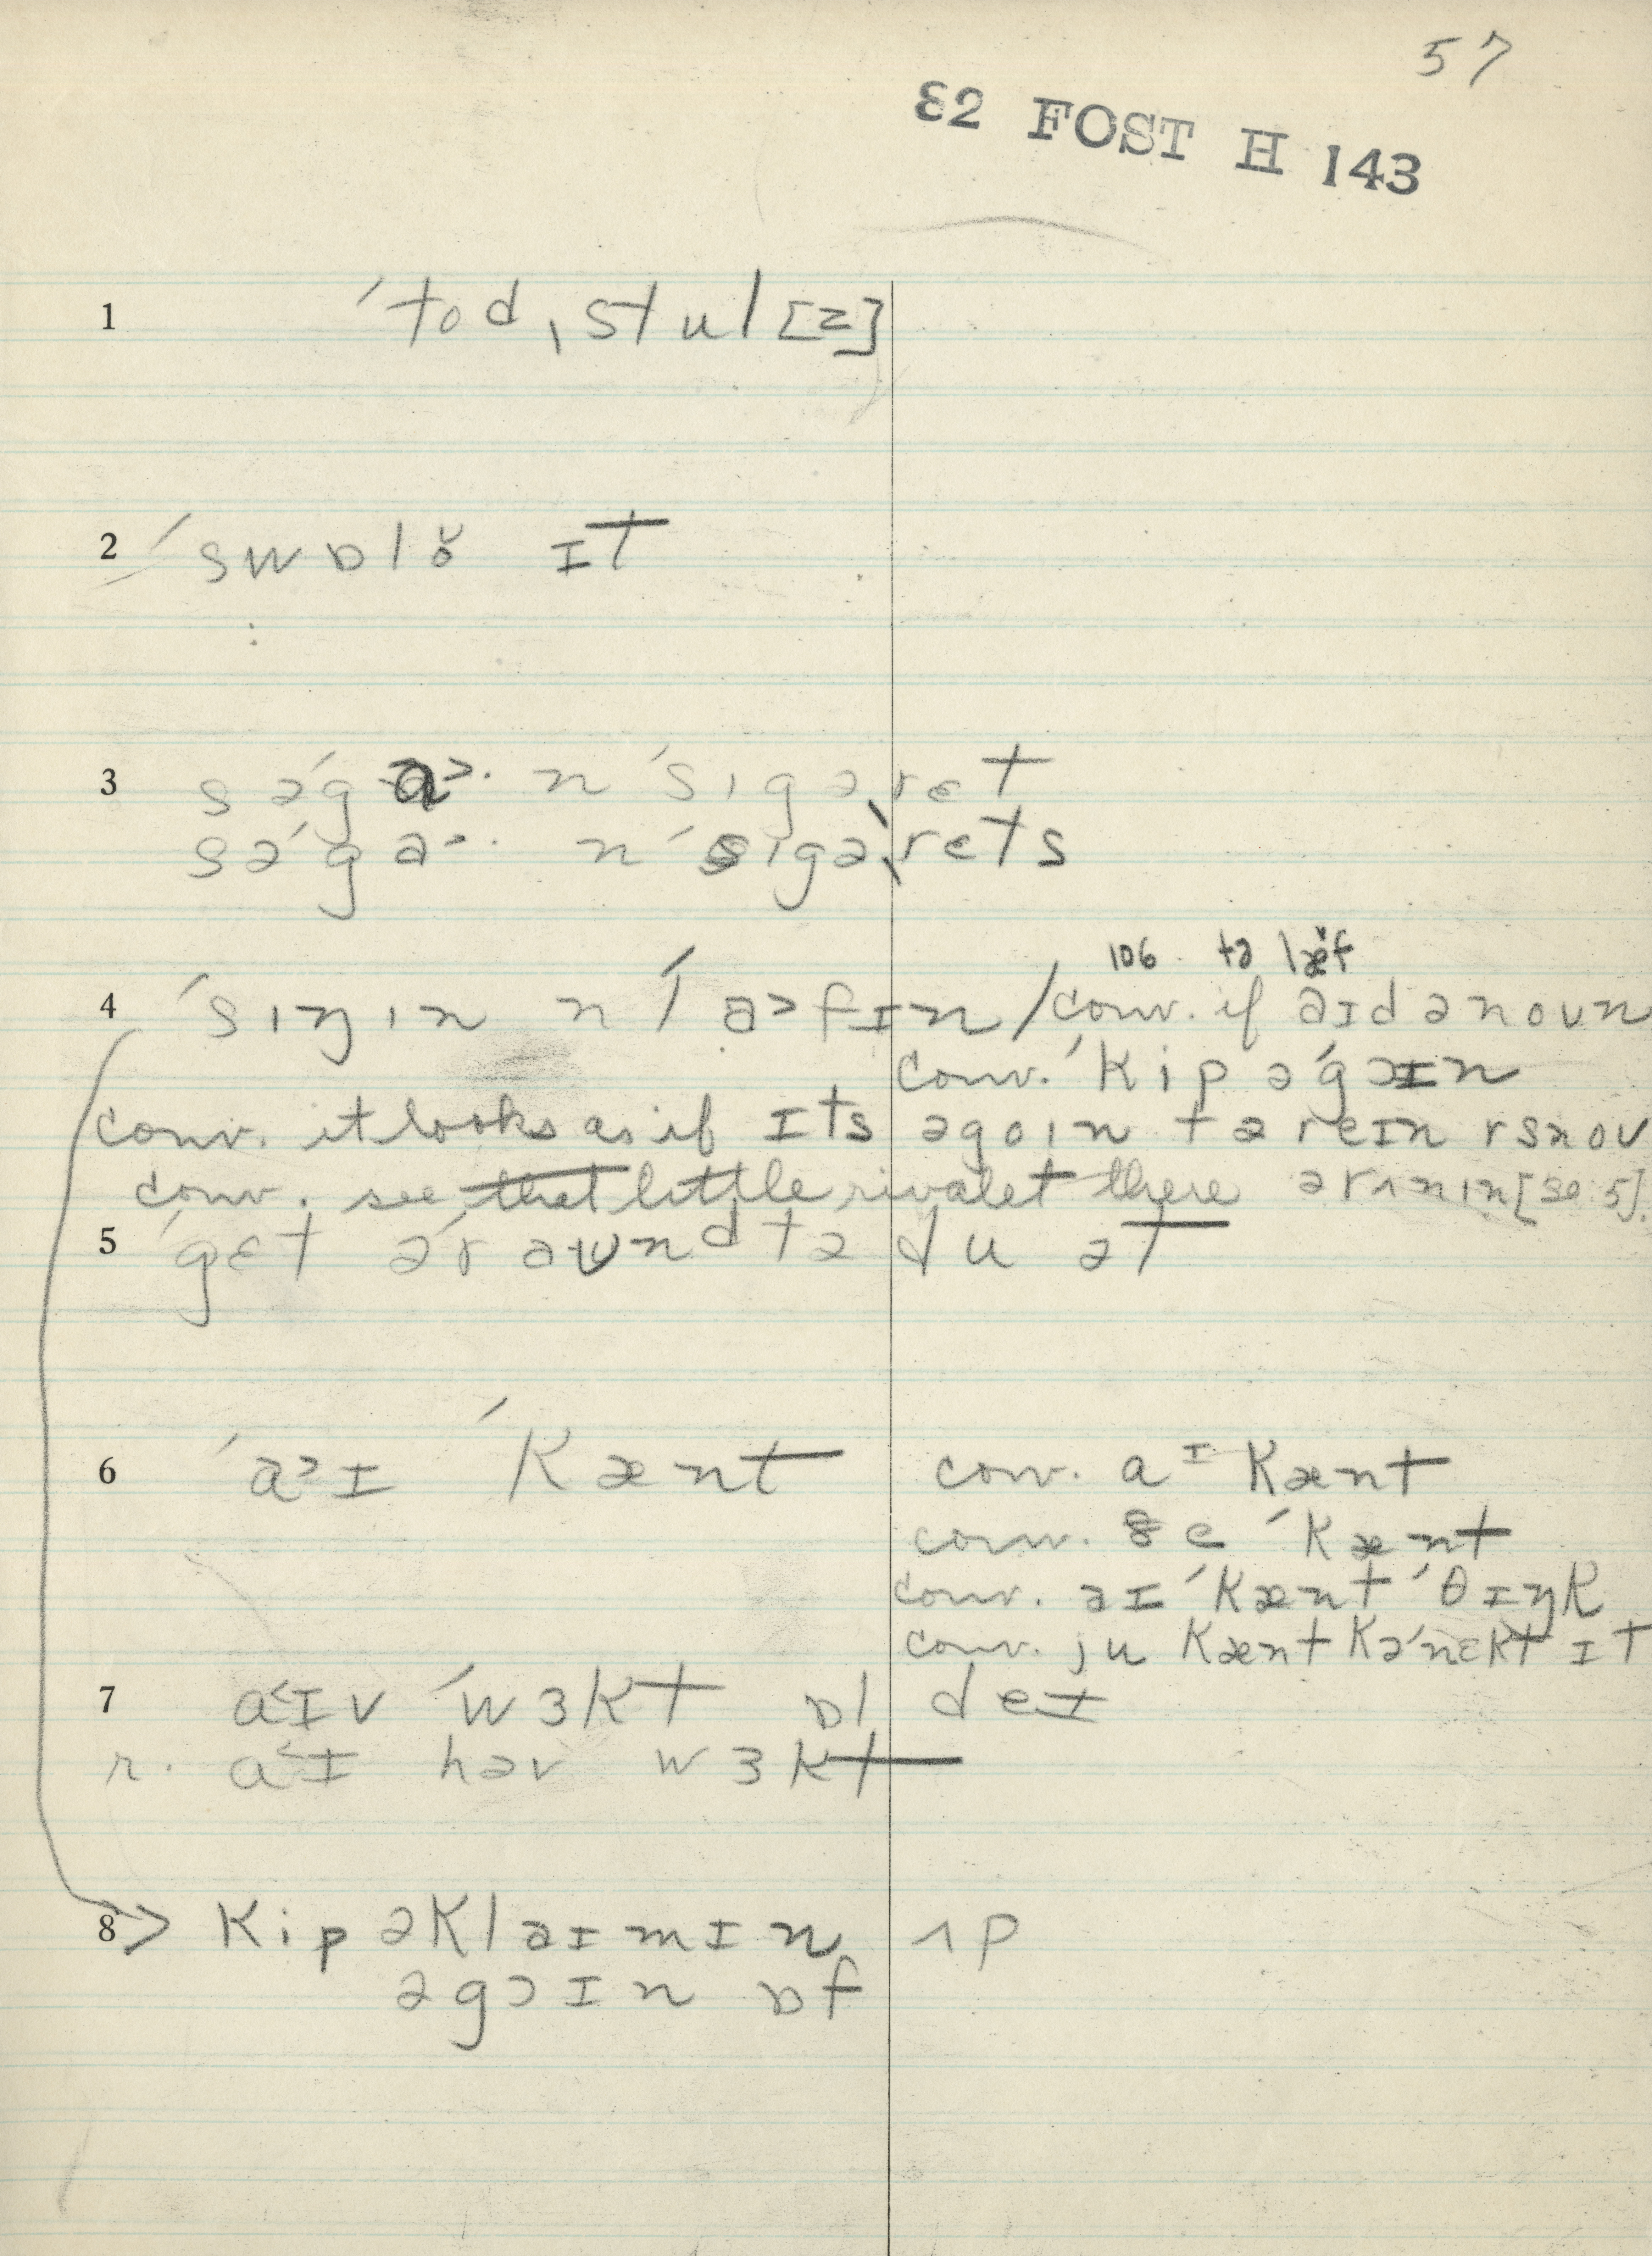 57
82 FOST H 143
1 ˈtodˌstul[z]
2 ˈswɒlɵ̆ ɪt
3 səˈga>· n ˈsigəˌrɛt
səˈga>· n ˈsigəˌrets
106 tə læ̆f
4 ˈsiŋin n ˈla>fɪn / conv. if aɪd ə noun
conv. ˈkip əˈgɔɪn
conv. it looks as if ɪts əgoin tə reɪn
conv. see that little rivulet there ərʌnin
5 ˈgɛt əˈraʊnd tə du ət
6 ˈa>ɪ ˈkænt conv. aᶦ kænt
conv. ðe ˈkænt
conv. əɪ ˈkænt ˈθɪŋk
conv. ju kænt kəˈnɛkt ɪt
7 a<ɪv ˈwɜkt ɒl deɪ
r. a<ɪ həv wɜkt
8 > kip əklaɪmɪn ʌp
əgɔɪn ɒf